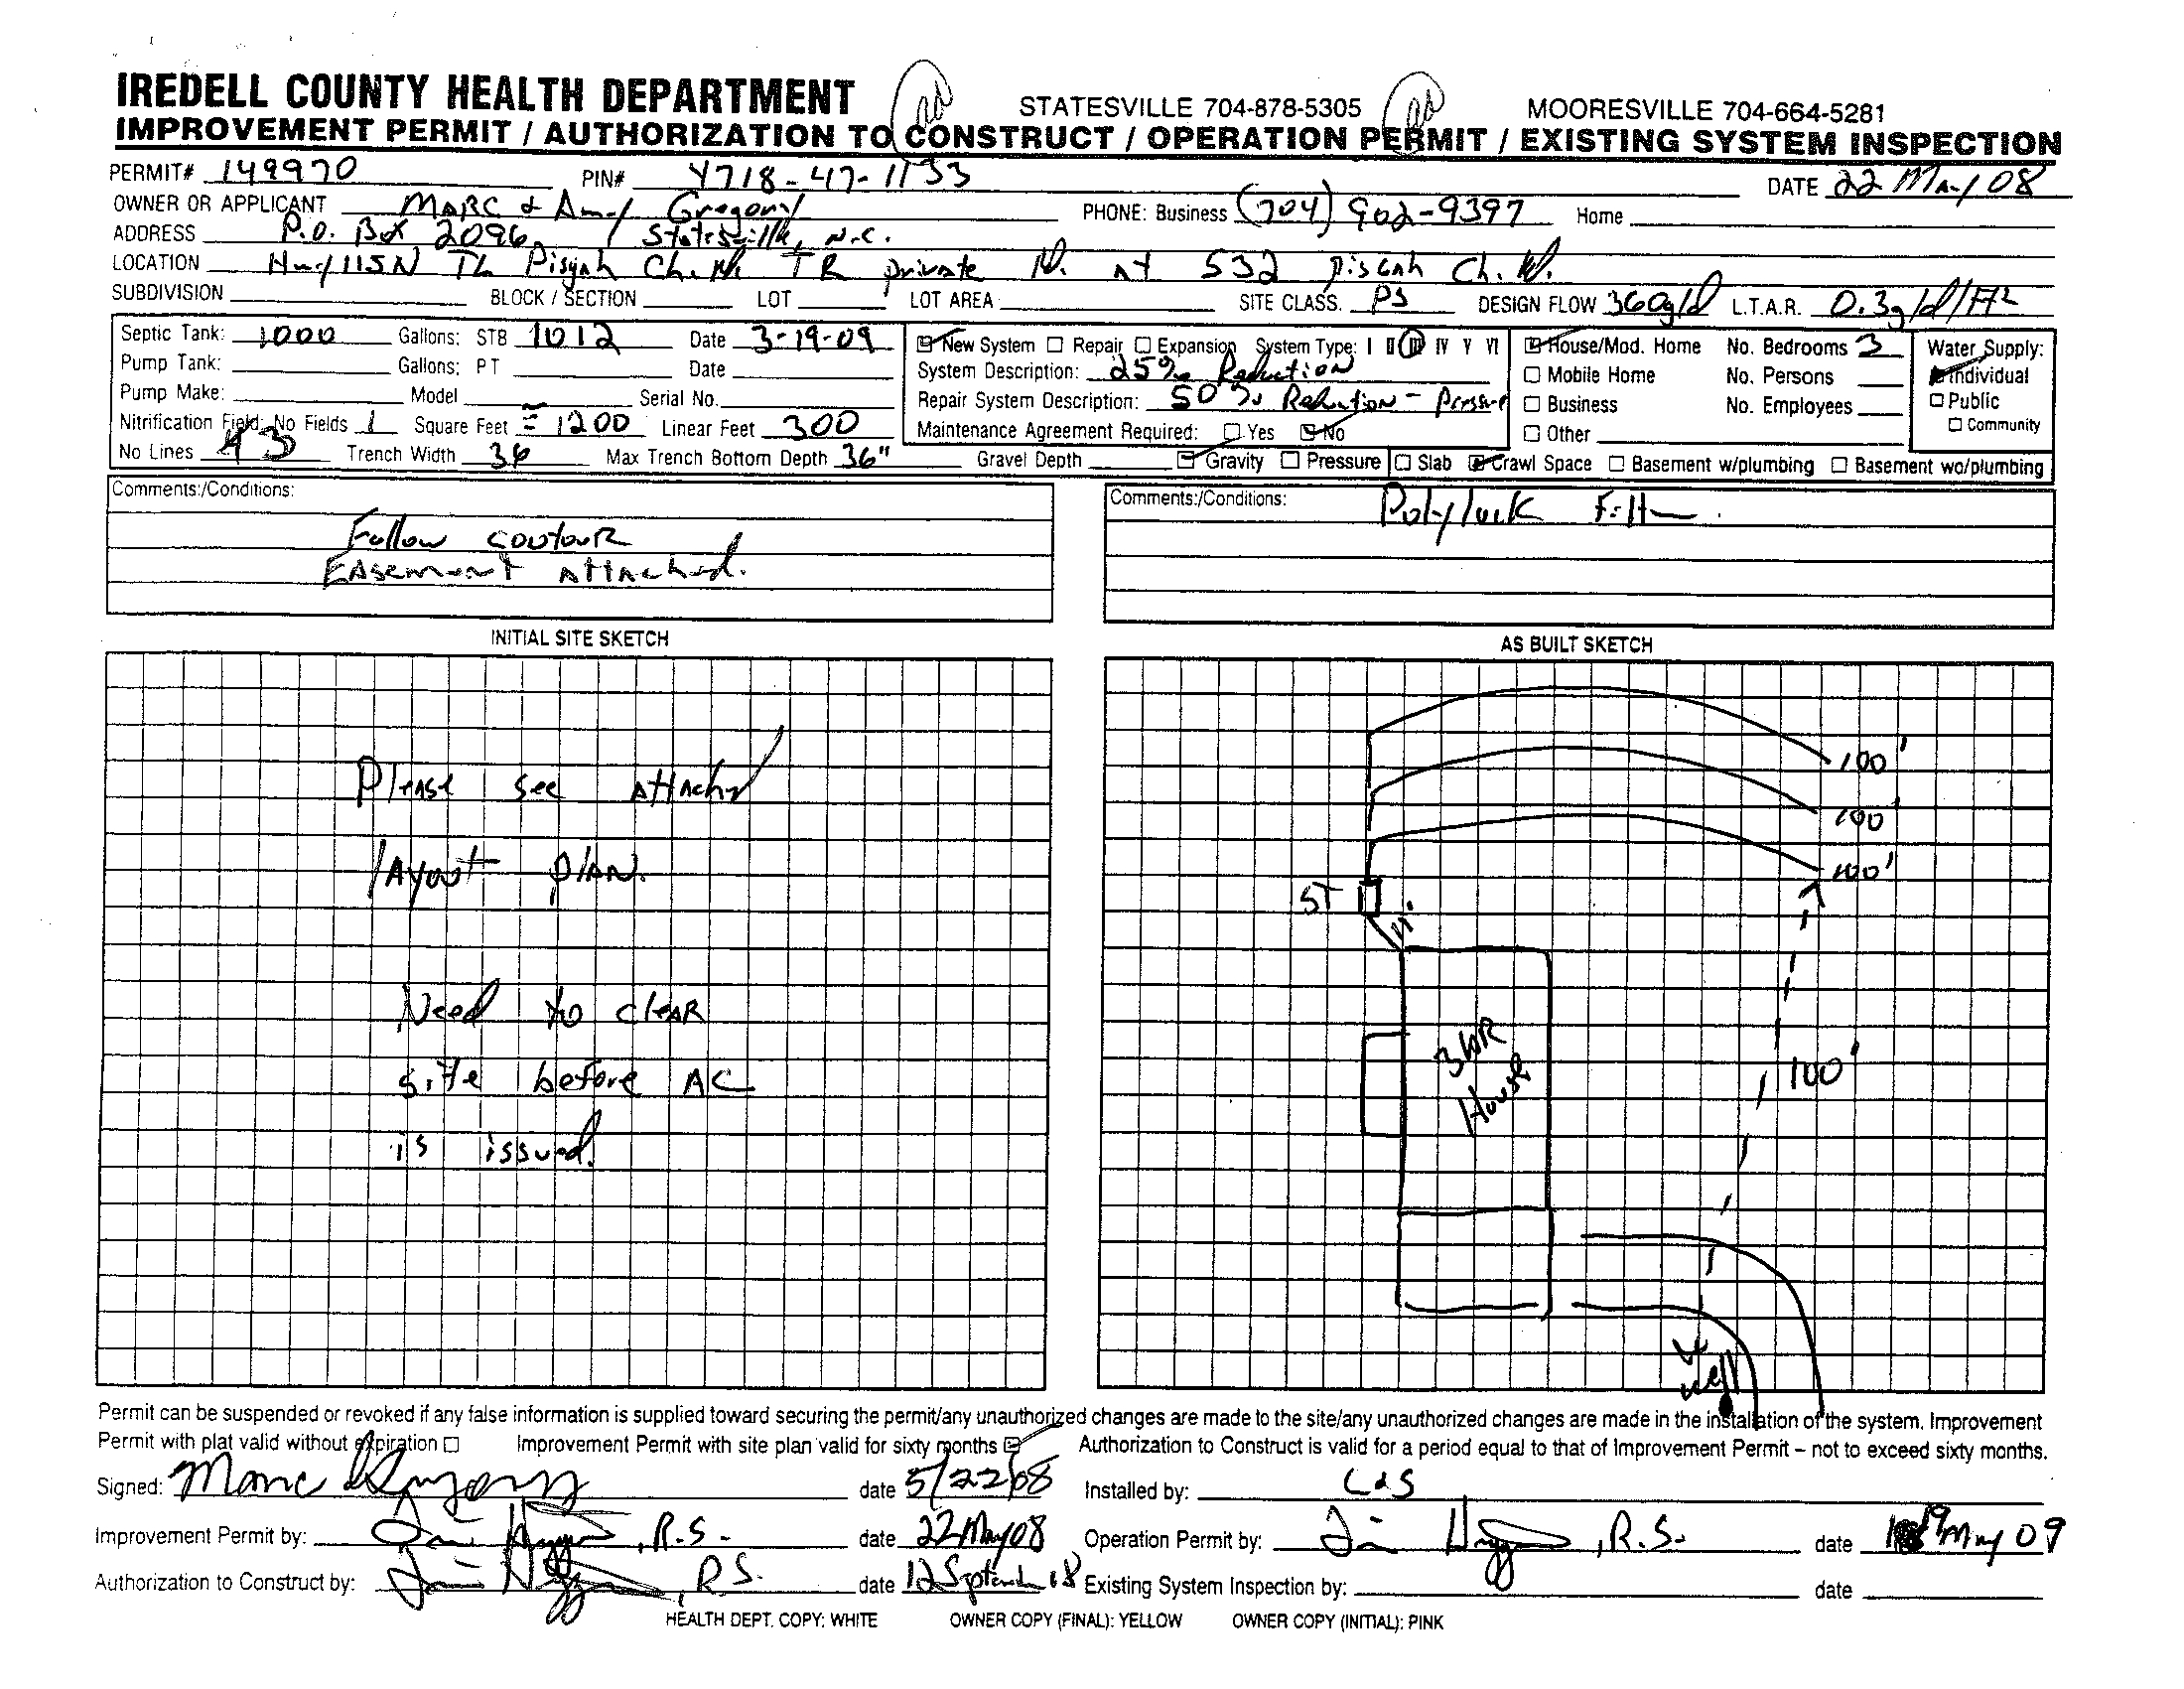 IREDELL COUNTY HEALTH DEPARTMENT STATESVILLE 704-878-5305 MOORESVILLE 704-664-5281
IMPROVEMENT PERMIT / AUTHORIZATION TO CONSTRUCT / OPERATION PERMIT / EXISTING SYSTEM INSPECTION
PERMIT# 149970 PIN# 4718-47-1133 DATE 22 May 08
OWNER OR APPLICANT MARC & Amy Gregory PHONE: Business (704) 902-9397 Home
ADDRESS P.O. Box 2096, Statesville, N.C.
LOCATION Hwy 115N TL Pisgah Ch. Rd. TR private Rd. at 532 Pisgah Ch. Rd.
SUBDIVISION BLOCK / SECTION LOT LOT AREA SITE CLASS. PS DESIGN FLOW 360g/d L.T.A.R. 0.3g/d/ft2
Septic Tank: 1000 Gallons: STB 1012 Date 3-19-09
Pump Tank: Gallons: PT Date
Pump Make: Model Serial No.
Nitrification Field: No Fields 1 Square Feet = 1200 Linear Feet 300
No Lines 3 Trench Width 36 Max Trench Bottom Depth 36" Gravel Depth Gravity Pressure Slab Crawl Space Basement w/plumbing Basement wo/plumbing
New System Repair Expansion System Type: I II III IV V VI
System Description: 25% Reduction
Repair System Description: 50% Reduction - Pressure
Maintenance Agreement Required: Yes No
House/Mod. Home No. Bedrooms 3
Mobile Home No. Persons
Business No. Employees
Other
Water Supply:
Individual
Public
Community
Comments:/Conditions:
Follow contour
Easement attached.
Comments:/Conditions: Polylock Filter.
INITIAL SITE SKETCH
Please see attached
layout plan.
Need to clear
site before AC
is issued.
AS BUILT SKETCH
100'
100'
100'
ST
11'
3BR
House
100'
well
Permit can be suspended or revoked if any false information is supplied toward securing the permit/any unauthorized changes are made to the site/any unauthorized changes are made in the installation of the system. Improvement
Permit with plat valid without expiration Improvement Permit with site plan valid for sixty months Authorization to Construct is valid for a period equal to that of Improvement Permit – not to exceed sixty months.
Signed: Marc Gregory date 5/22/08 Installed by: L&S
Improvement Permit by: , R.S. date 22 May 08 Operation Permit by: , R.S. date 19 May 09
Authorization to Construct by: , R.S. date 12 September 08 Existing System Inspection by: date
HEALTH DEPT. COPY: WHITE OWNER COPY (FINAL): YELLOW OWNER COPY (INITIAL): PINK